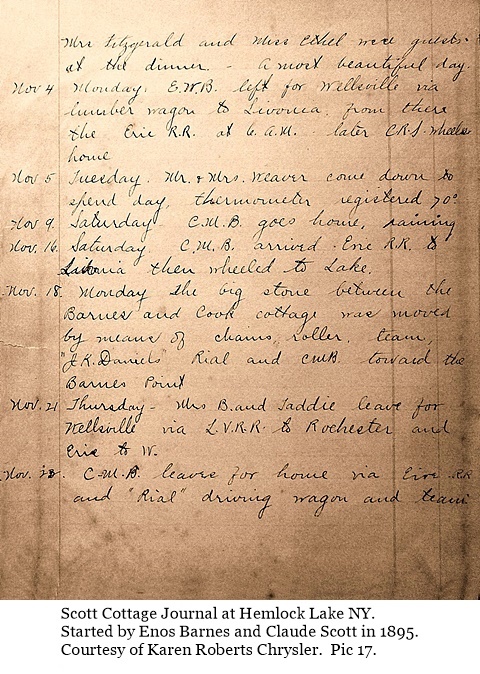 Mrs Fitzgerald and Miss Ethel were guests
at the dinner. - A most beautiful day.
Nov 4 Monday. E.W.B. left for Wellsville via
lumber wagon to Livonia, from there
the Erie R.R. at 6 A.M. - later C.R.S. wheels
home
Nov 5 Tuesday. Mr. & Mrs. Weaver come down to
spend day, thermometer registered 70°
Nov 9. Saturday - C.M.B. goes home, raining
Nov. 16 Saturday, C.M.B. arrived - Erie R.R. to
Livonia then wheeled to Lake.
Nov. 18. Monday The big stone between the
Barnes and Cook cottage was moved
by means of chains, roller, team,
"J.R. Daniels" Rial and CMB toward the
Barnes Point
Nov. 21 Thursday - Mrs B. and Taddie leave for
Wellsville via L.V.R.R. to Rochester and
Erie to W.
Nov. C.M.B. leaves for home via Erie RR
and "Rial" driving wagon and team
Scott Cottage Journal at Hemlock Lake NY.
Started by Enos Barnes and Claude Scott in 1895.
Courtesy of Karen Roberts Chrysler. Pic 17.